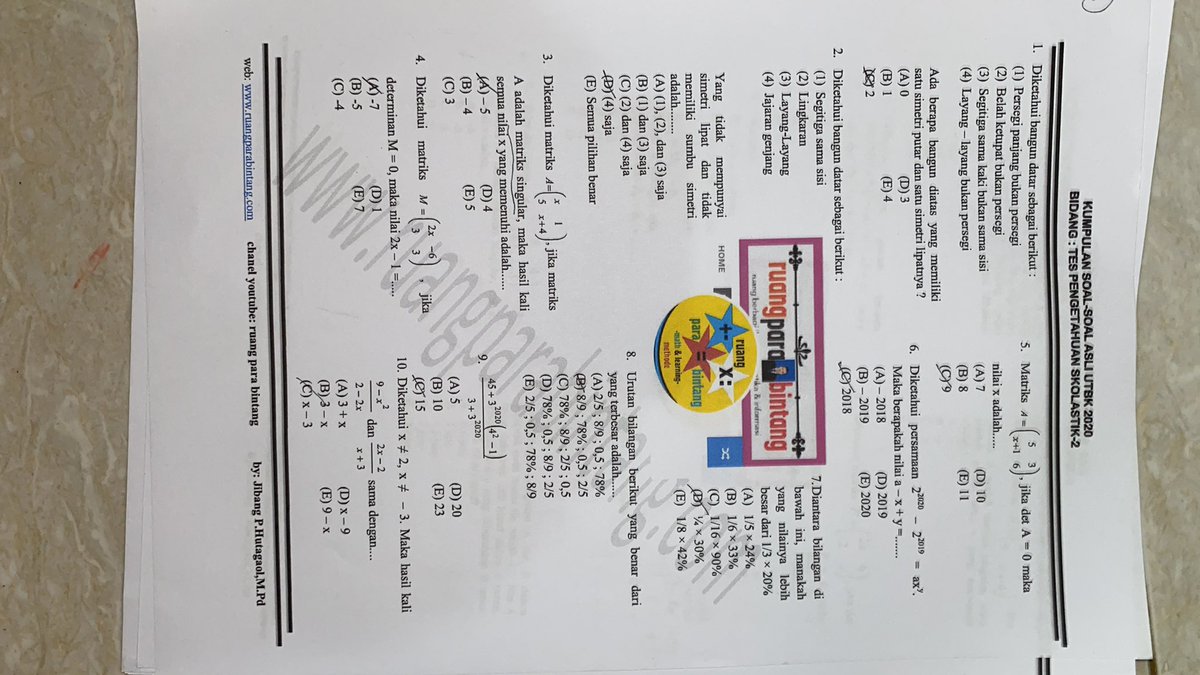 KUMPULAN SOAL-SOAL ASLI UTBK 2020
BIDANG : TES PENGETAHUAN SKOLASTIK-2
1. Diketahui bangun datar sebagai berikut :
(1) Persegi panjang bukan persegi
(2) Belah ketupat bukan persegi
(3) Segitiga sama kaki bukan sama sisi
(4) Layang – layang bukan persegi
Ada berapa bangun diatas yang memiliki
satu simetri putar dan satu simetri lipatnya ?
(A) 0 (D) 3
(B) 1 (E) 4
(C) 2
2. Diketahui bangun datar sebagai berikut :
(1) Segitiga sama sisi
(2) Lingkaran
(3) Layang-Layang
(4) Jajaran genjang
Yang tidak mempunyai
simetri lipat dan tidak
memiliki sumbu simetri
adalah.........
(A) (1), (2), dan (3) saja
(B) (1) dan (3) saja
(C) (2) dan (4) saja
(D) (4) saja
(E) Semua pilihan benar
3. Diketahui matriks A=(x 1
5 x+4), jika matriks
A adalah matriks singular, maka hasil kali
semua nilai x yang memenuhi adalah......
(A) – 5 (D) 4
(B) – 4 (E) 5
(C) 3
4. Diketahui matriks M = (2x –6
3 3) , jika
determinan M = 0, maka nilai 2x – 1 =.....
(A) -7 (D) 1
(B) -5 (E) 7
(C) -4
5. Matriks A = (5 3
x+1 6), jika det A = 0 maka
nilai x adalah......
(A) 7 (D) 10
(B) 8 (E) 11
(C) 9
6. Diketahui persamaan 2²⁰²⁰ – 2²⁰¹⁹ = axʸ.
Maka berapakah nilai a – x + y =.......
(A) – 2018 (D) 2019
(B) – 2019 (E) 2020
(C) 2018
ruangparabintang
HOME
ruang
+- x:
para = bintang
-math & learning-
methode
7.Diantara bilangan di
bawah ini, manakah
yang nilainya lebih
besar dari 1/3 × 20%
(A) 1/5 × 24%
(B) 1/6 × 33%
(C) 1/16 × 90%
(D) ¼ × 30%
(E) 1/8 × 42%
8. Urutan bilangan berikut yang benar dari
yang terbesar adalah......
(A) 2/5 ; 8/9 ; 0,5 ; 78%
(B) 8/9 ; 78% ; 0,5 ; 2/5
(C) 78% ; 8/9 ; 2/5 ; 0,5
(D) 78% ; 0,5 ; 8/9 ; 2/5
(E) 2/5 ; 0,5 ; 78% ; 8/9
9. 45 + 3²⁰²⁰(4² – 1)
3 + 3²⁰²⁰
(A) 5 (D) 20
(B) 10 (E) 23
(C) 15
10. Diketahui x ≠ 2, x ≠ – 3. Maka hasil kali
9 – x² / 2 – 2x dan 2x – 2 / x + 3 sama dengan....
(A) 3 + x (D) x – 9
(B) 3 – x (E) 9 – x
(C) x – 3
www.ruangparabintang.com
web: www.ruangparabintang.com chanel youtube: ruang para bintang by: Jibang P.Hutagaol,M.Pd